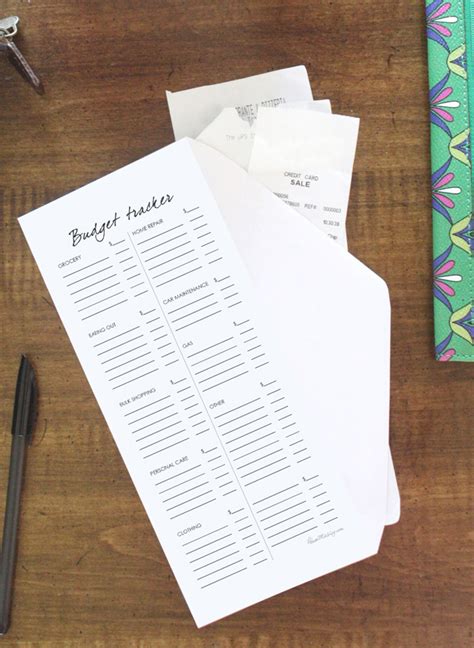 CREDIT CARD
SALE
REF#:
Budget tracker
GROCERY $
EATING OUT $
BULK SHOPPING $
PERSONAL CARE $
CLOTHING $
HOME REPAIR $
CAR MAINTENANCE $
GAS $
OTHER $
$